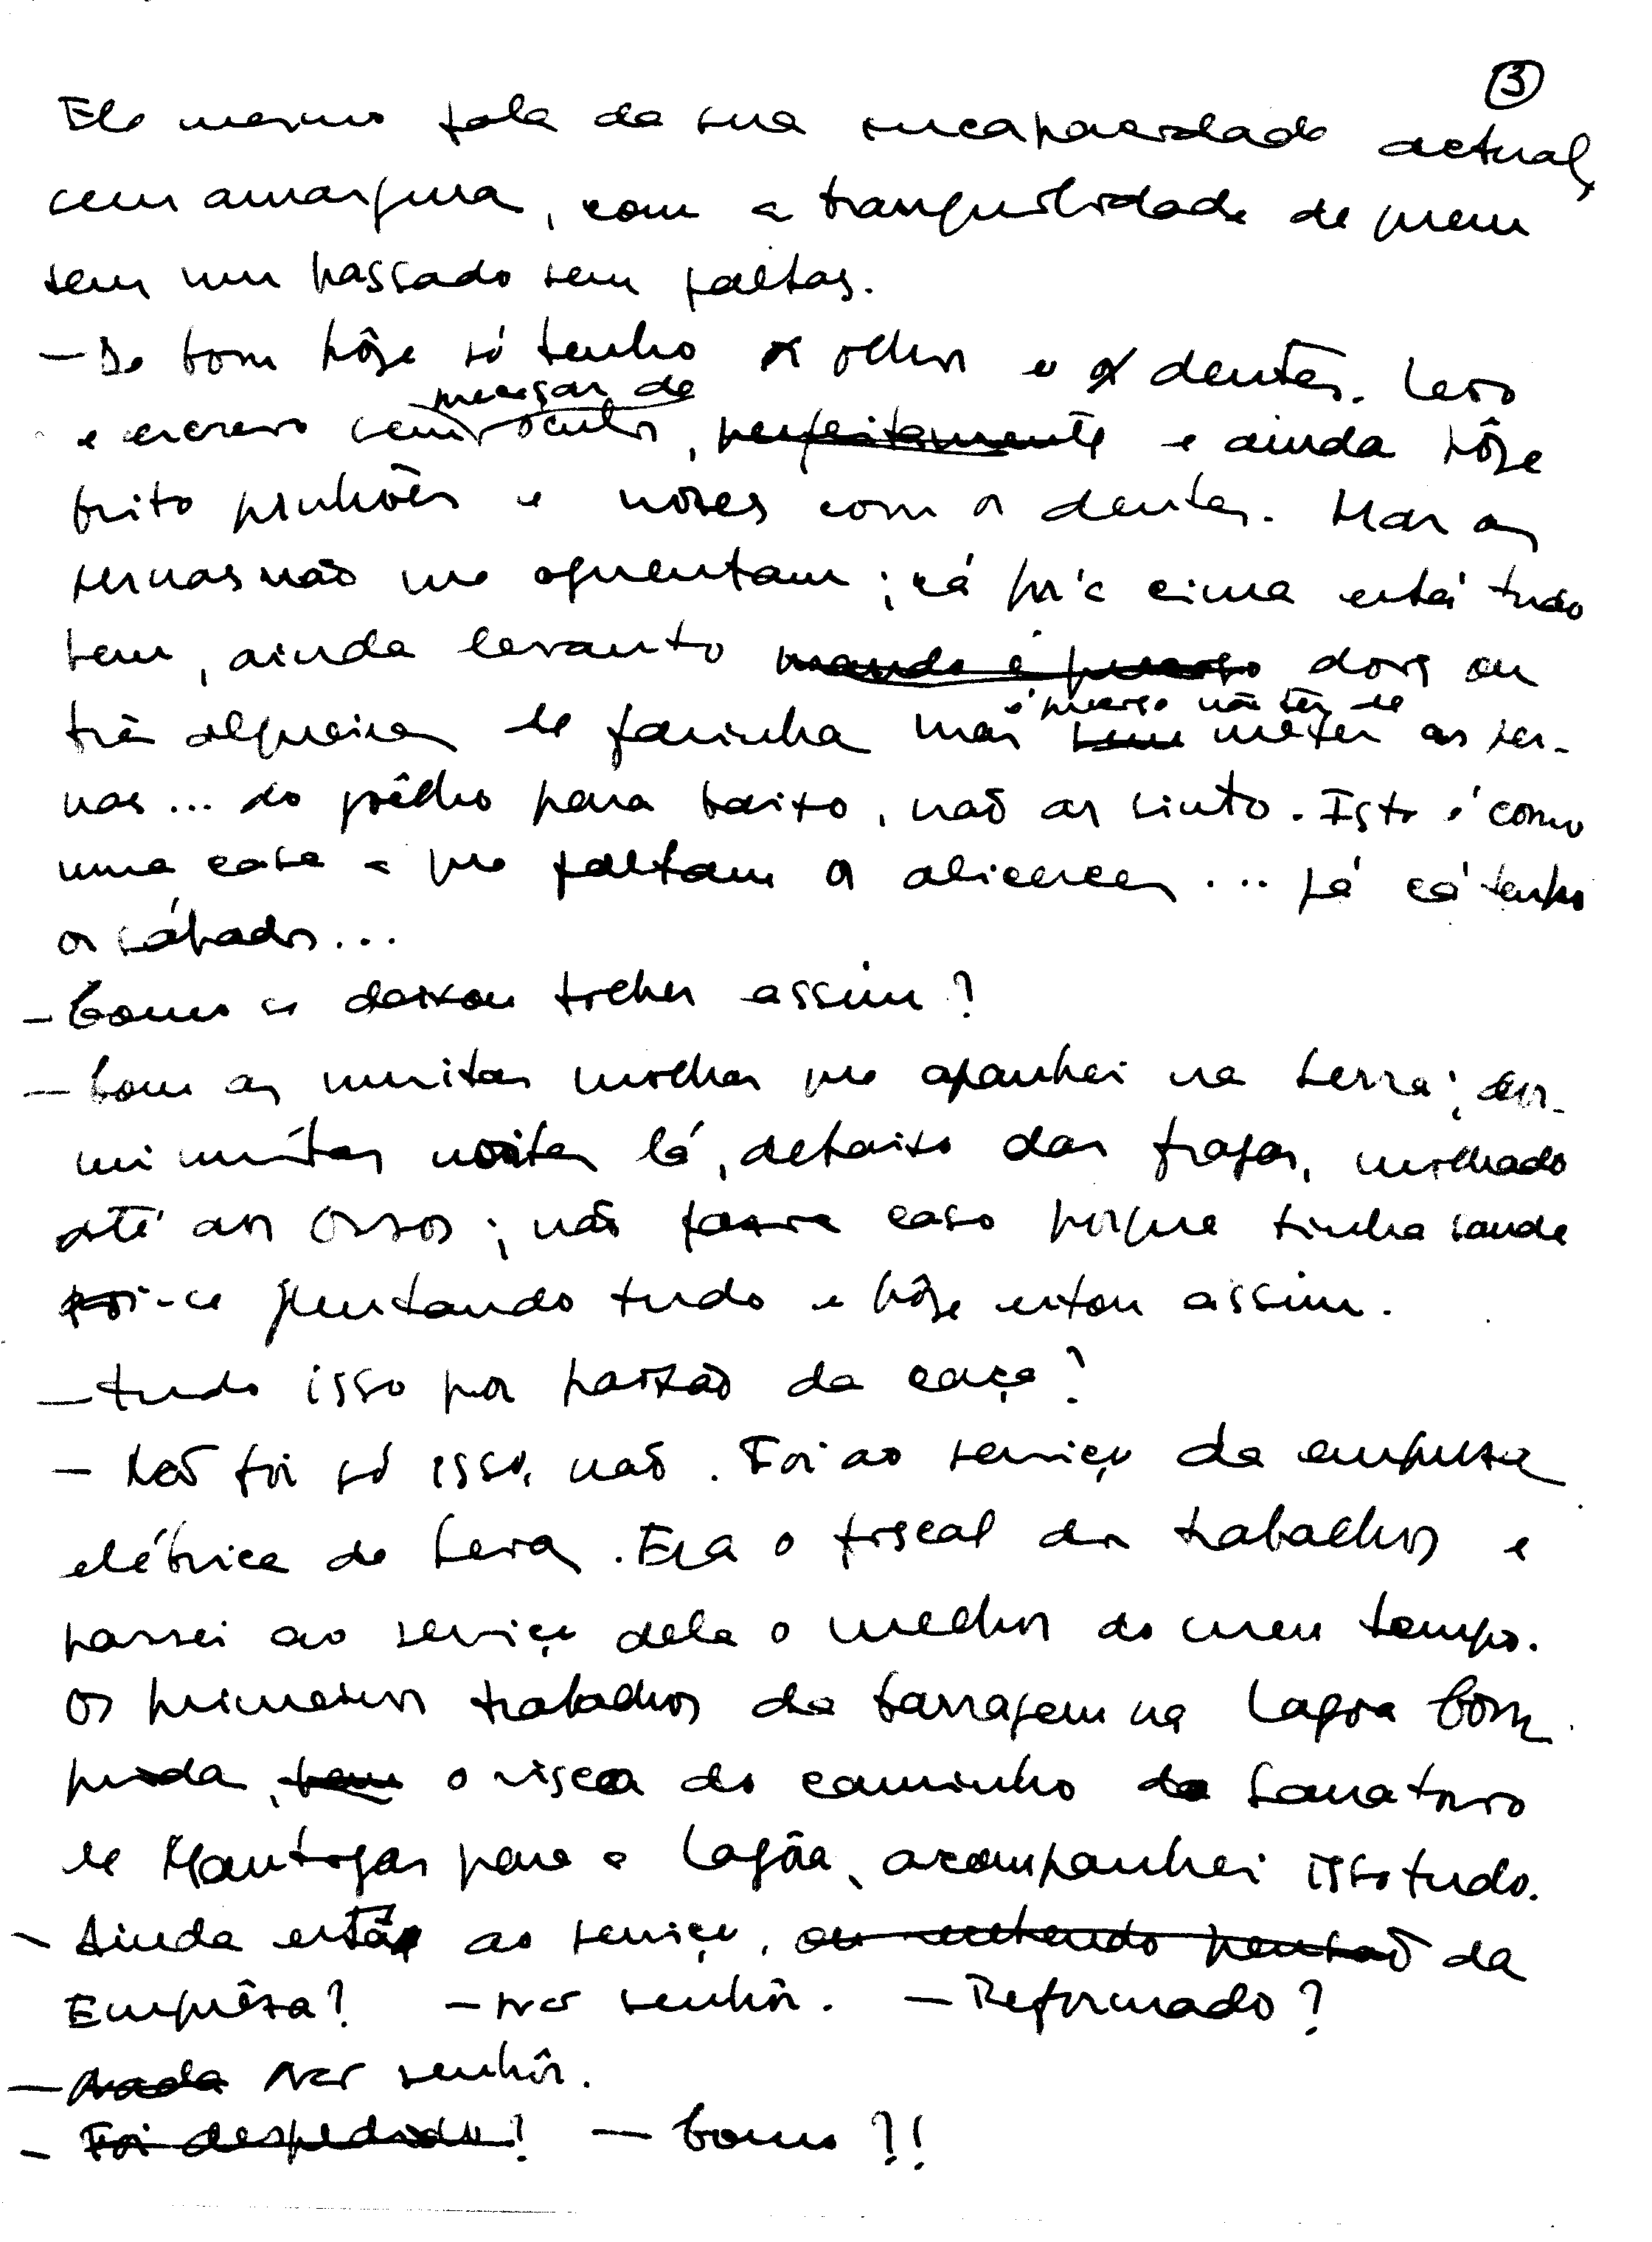 3
Ele mesmo fala da sua incapacidade actual,
sem amargura, com a tranquilidade de quem
tem um passado sem faltas.
— De bom hôje só tenho os olhos e os dentes. Leio
precisar de
e escrevo sem oculos, perfeitamente e ainda hôje
brito pinhões e nozes com os dentes. Mas as
pernas não me aguentam; cá pr'a cima está tudo
bem, ainda levanto quando é preciso dois ou
é preciso não têr de
três alqueires de farinha mas sem meter as per-
nas... do joêlho para baixo, não as sinto. Isto é como
uma casa a que faltam os alicerces... Já cá tenho
os sábados...
— Como se deixou tolher assim?
— Com as muitas molhas que apanhei na serra; dor-
mi muitas noites lá, debaixo das fragas, molhado
até aos ossos; não fazia caso porque tinha saude
foi-se juntando tudo e hôje estou assim.
— Tudo isso por paixão da caça?
— Não foi só isso, não. Foi ao serviço da empresa
elétrica de Seia. Era o fiscal dos trabalhos e
passei ao serviço dela o melhor do meu tempo.
Os primeiros trabalhos da barragem na Lagoa Com
prida, bem o risco do caminho do Sanatorio
de Manteigas para a Lagôa, acompanhei isso tudo.
— Ainda está ao serviço, ou recebendo pensão da
Emprêsa? — Não senhôr. — Reformado?
— Nada Não senhôr.
— Foi despedido? — Como?!